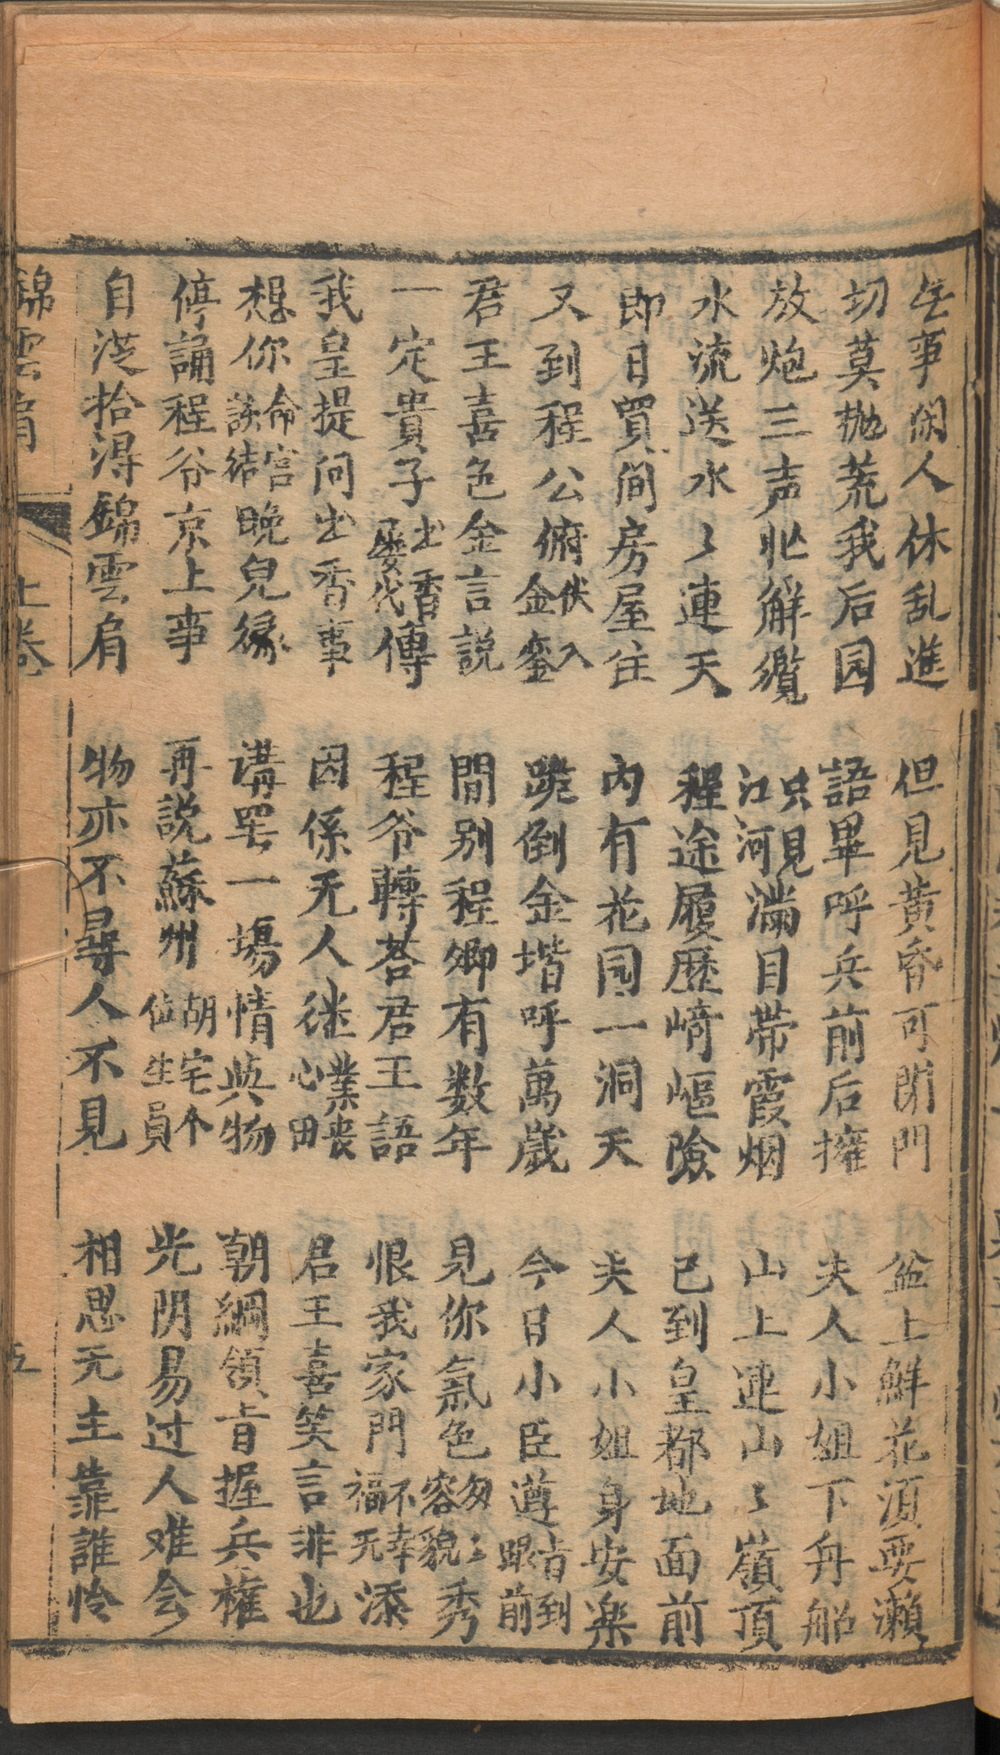 无事閑人休乱進 但見黃昏可閉門 盆上鮮花須要瀨
切莫抛荒我后园 語畢呼兵前后擁 夫人小姐下舟船
放炮三声忙解纜 只見江河滿目帶霞烟 山上連山〻嶺頂
水流送水〻連天 程途履歷崎嶇險 已到皇都地面前
即日買间房屋住 內有花园一洞天 夫人小姐身安楽
又到程公俯伏入金銮 跪倒金堦呼萬歲 今日小臣遵旨到眼前
君王喜色金言説 間别程卿有数年 見你氣色匆〻容貌秀
一定貴子出香代傳 程爷轉荅君王語 恨我家門不幸福无添
我皇提问出香事 因係无人継業喪心田 君王喜笑言非也
想你命宫該結晚兒緣 講罢一場情與物 朝綱領旨握兵權
停誦程爷京上事 再説蘇州胡宅个位生員 光阴易过人难会
自從拾得錦雲肩 物亦不尋人不見 相思无主靠誰怜
錦雲肩 上卷 五